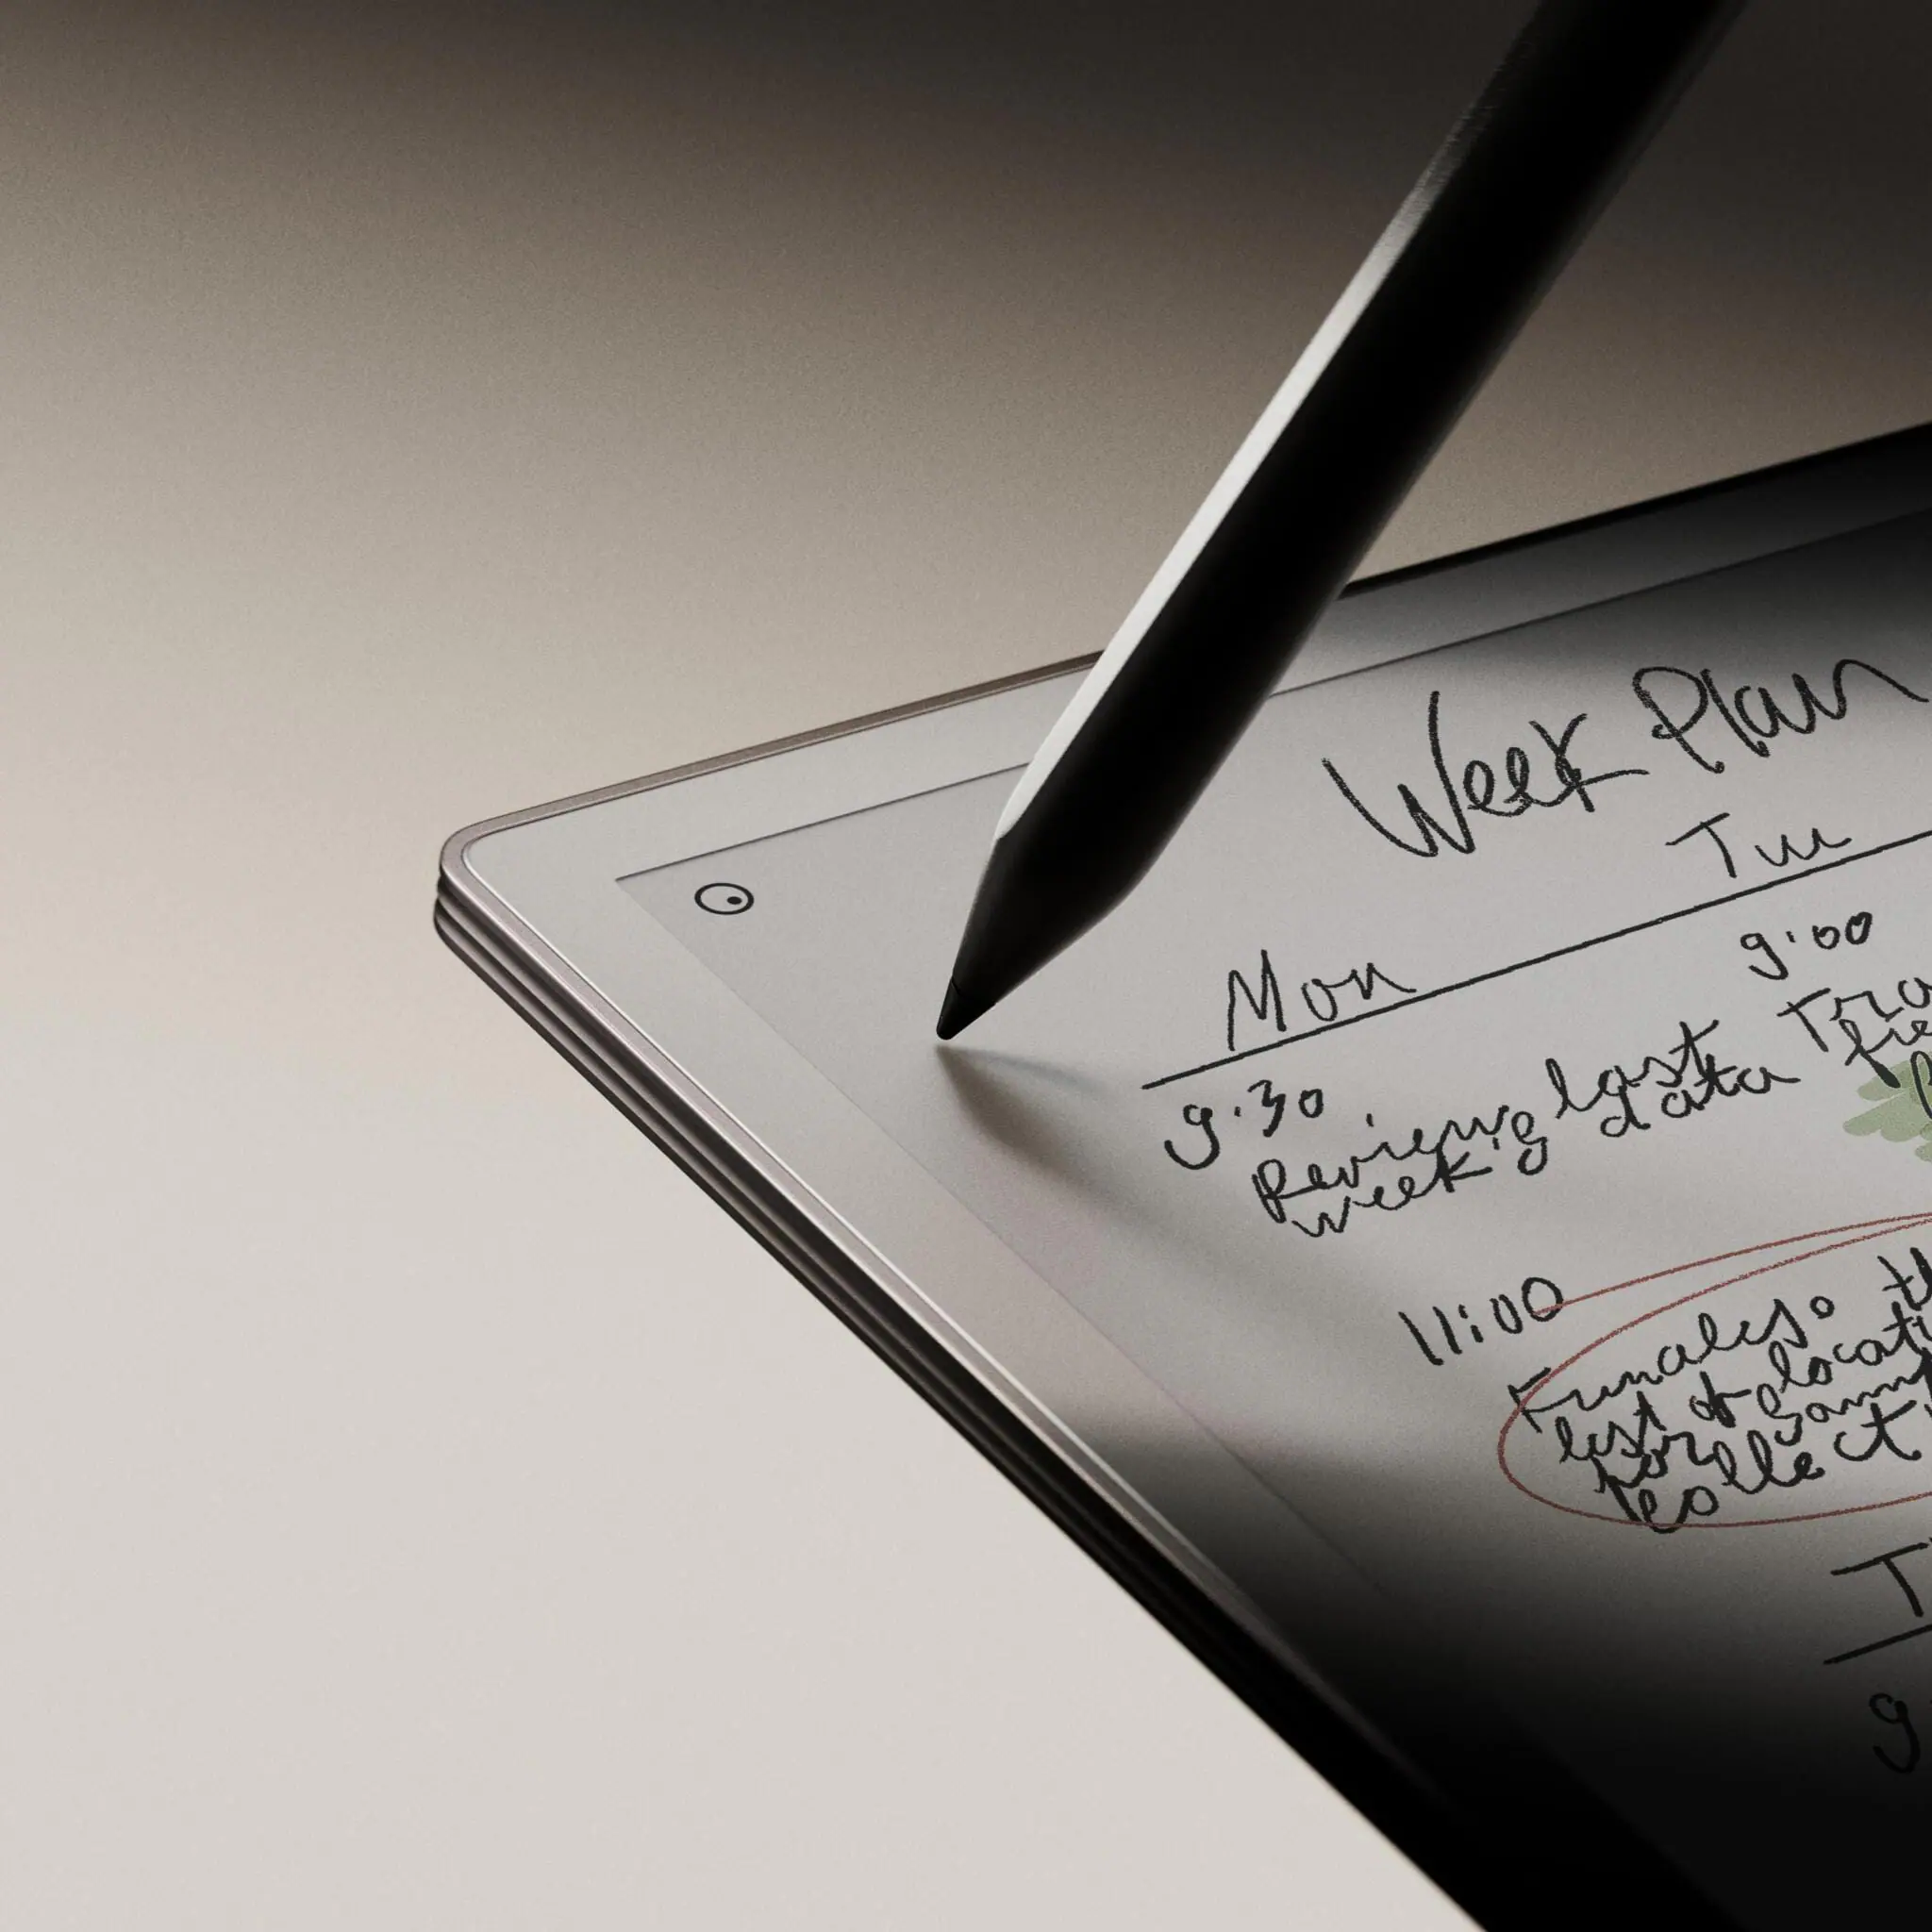 Week Plan
Mon
Tue
9:30
Reviewing last
week's data
9:00
Tra
fie
11:00
Finalise th
list of locati
for samp
collect
T
9